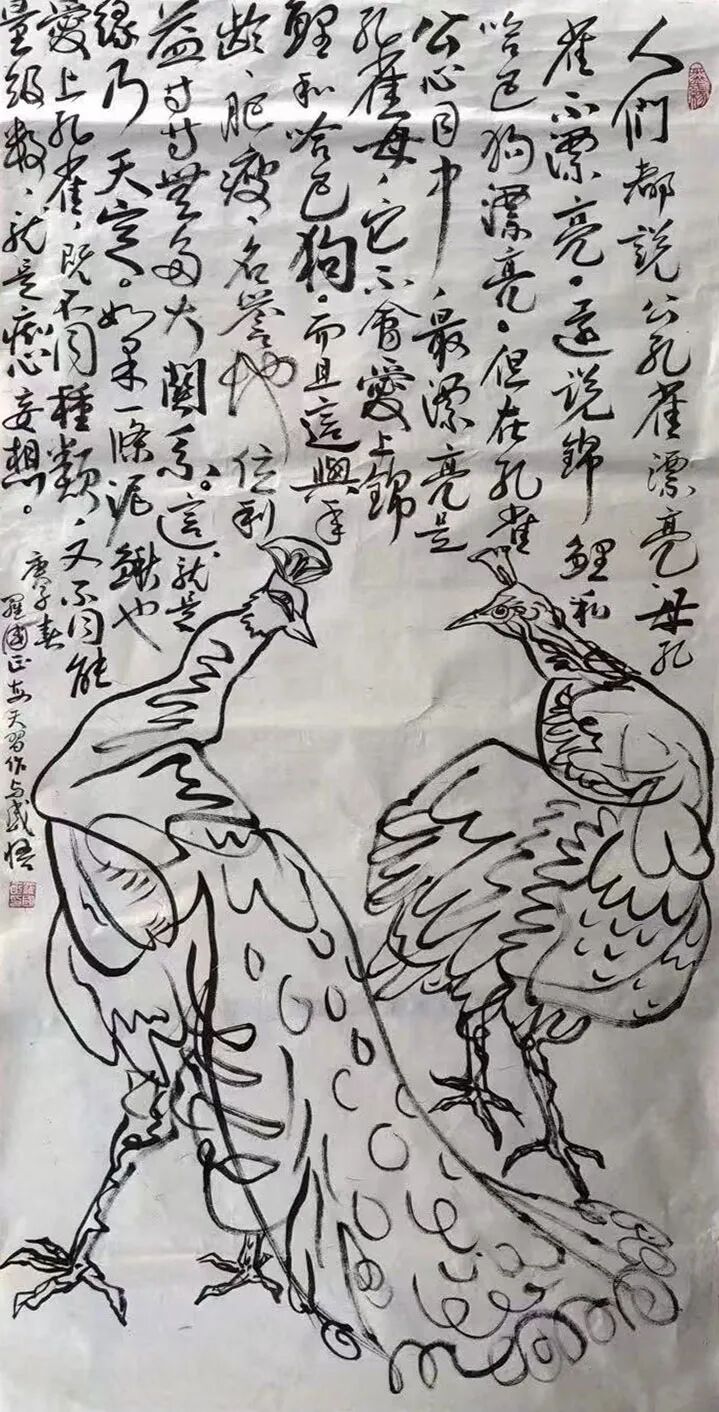 人們都說公孔雀漂亮，母孔
雀不漂亮。還說錦鯉和
哈巴狗漂亮。但在孔雀
公心目中，最漂亮是
孔雀母，它不會愛上錦
鯉和哈巴狗。而且這與年
龄、肥瘦、名譽地位利
益等等無多大關系。這就是
緣乃天定。如果一條泥鰍也
愛上孔雀，既不同種類，又不同能
量級數，就是痴心妄想。
庚子春
羅國正安天習作与感悟